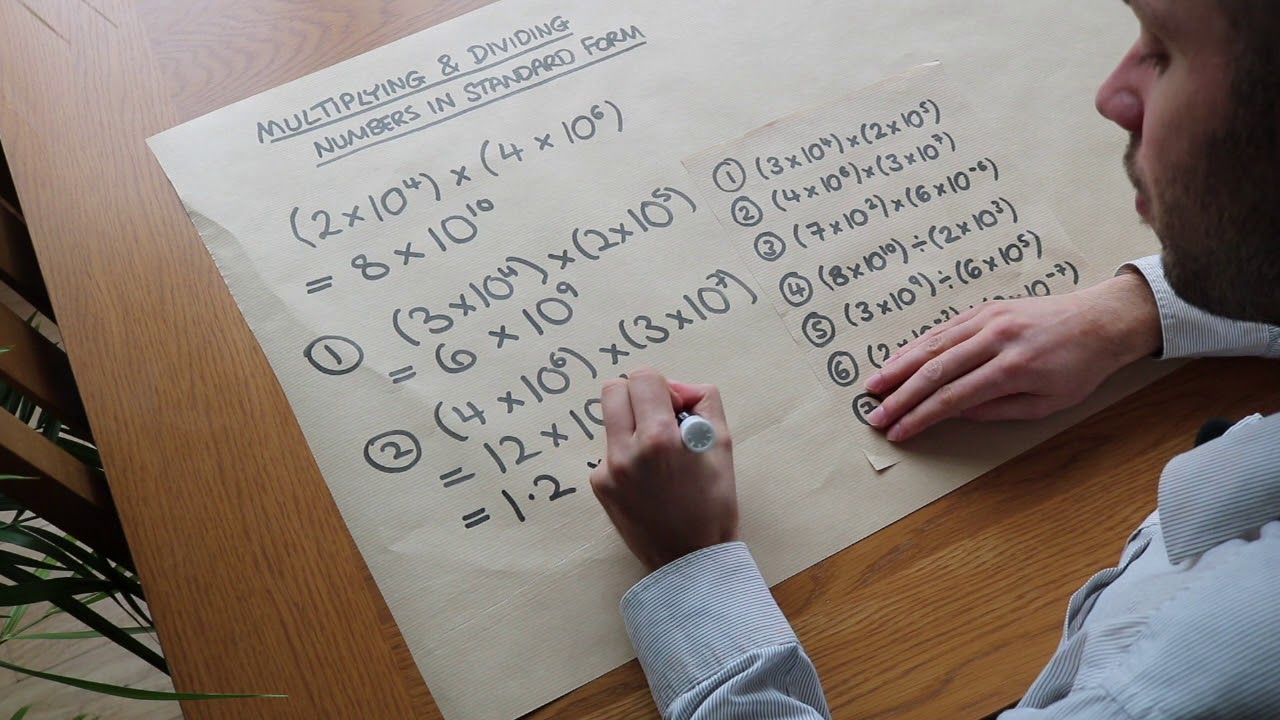 MULTIPLYING & DIVIDING
NUMBERS IN STANDARD FORM
(2 × 10⁴) × (4 × 10⁶)
= 8 × 10¹⁰
① (3 × 10⁴) × (2 × 10⁵)
= 6 × 10⁹
② (4 × 10⁶) × (3 × 10⁷)
= 12 × 10
= 1·2
① (3 × 10⁴) × (2 × 10⁵)
② (4 × 10⁶) × (3 × 10⁷)
③ (7 × 10²) × (6 × 10⁻⁶)
④ (8 × 10¹⁰) ÷ (2 × 10³)
⑤ (3 × 10⁹) ÷ (6 × 10⁵)
⑥ (2 × 10